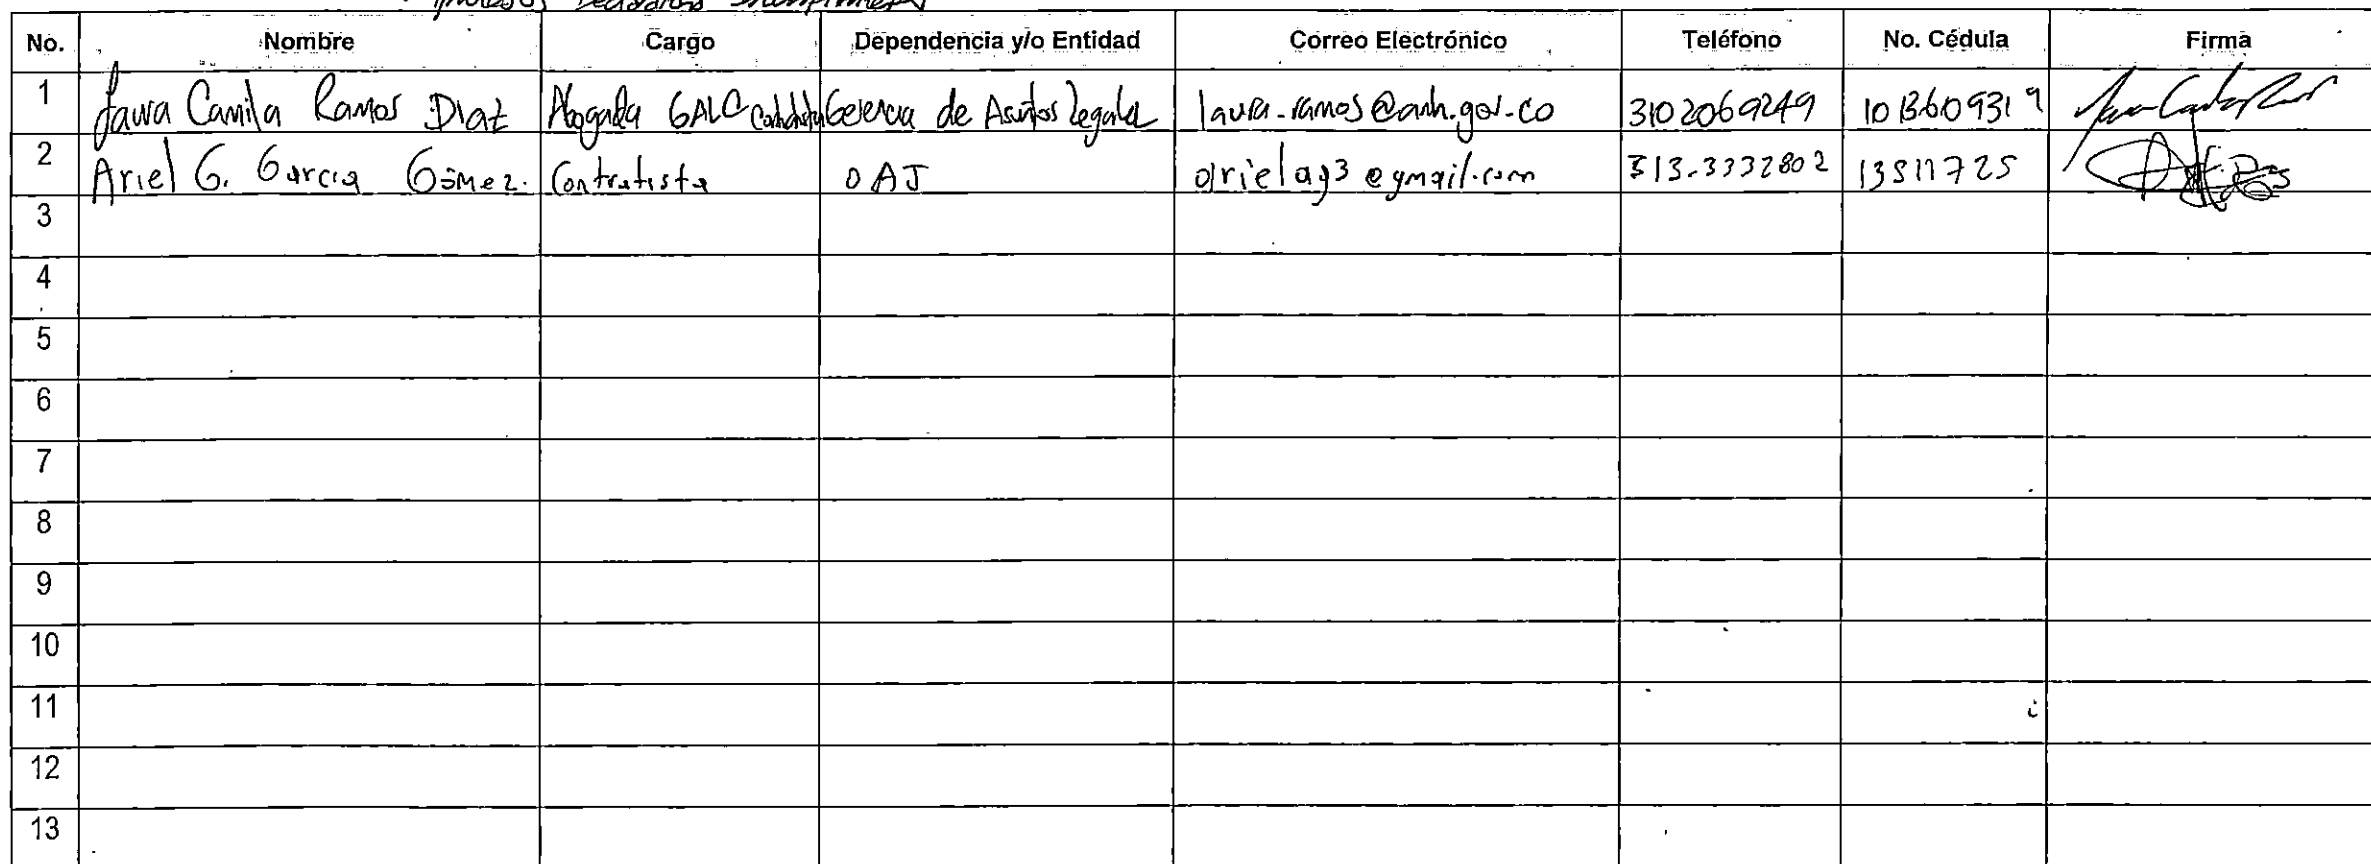 procesos declaratorios incumplimientos
No. Nombre Cargo Dependencia y/o Entidad Correo Electrónico Teléfono No. Cédula Firma
1 Laura Camila Ramos Diaz Abogada GALC Contratista Gerencia de Asuntos Legales laura.ramos@anh.gov.co 3102069249 1013609319
2 Ariel G. Garcia Gómez. Contratista OAJ arielag3@gmail.com 313-3332802 13511725
3
4
5
6
7
8
9
10
11
12
13